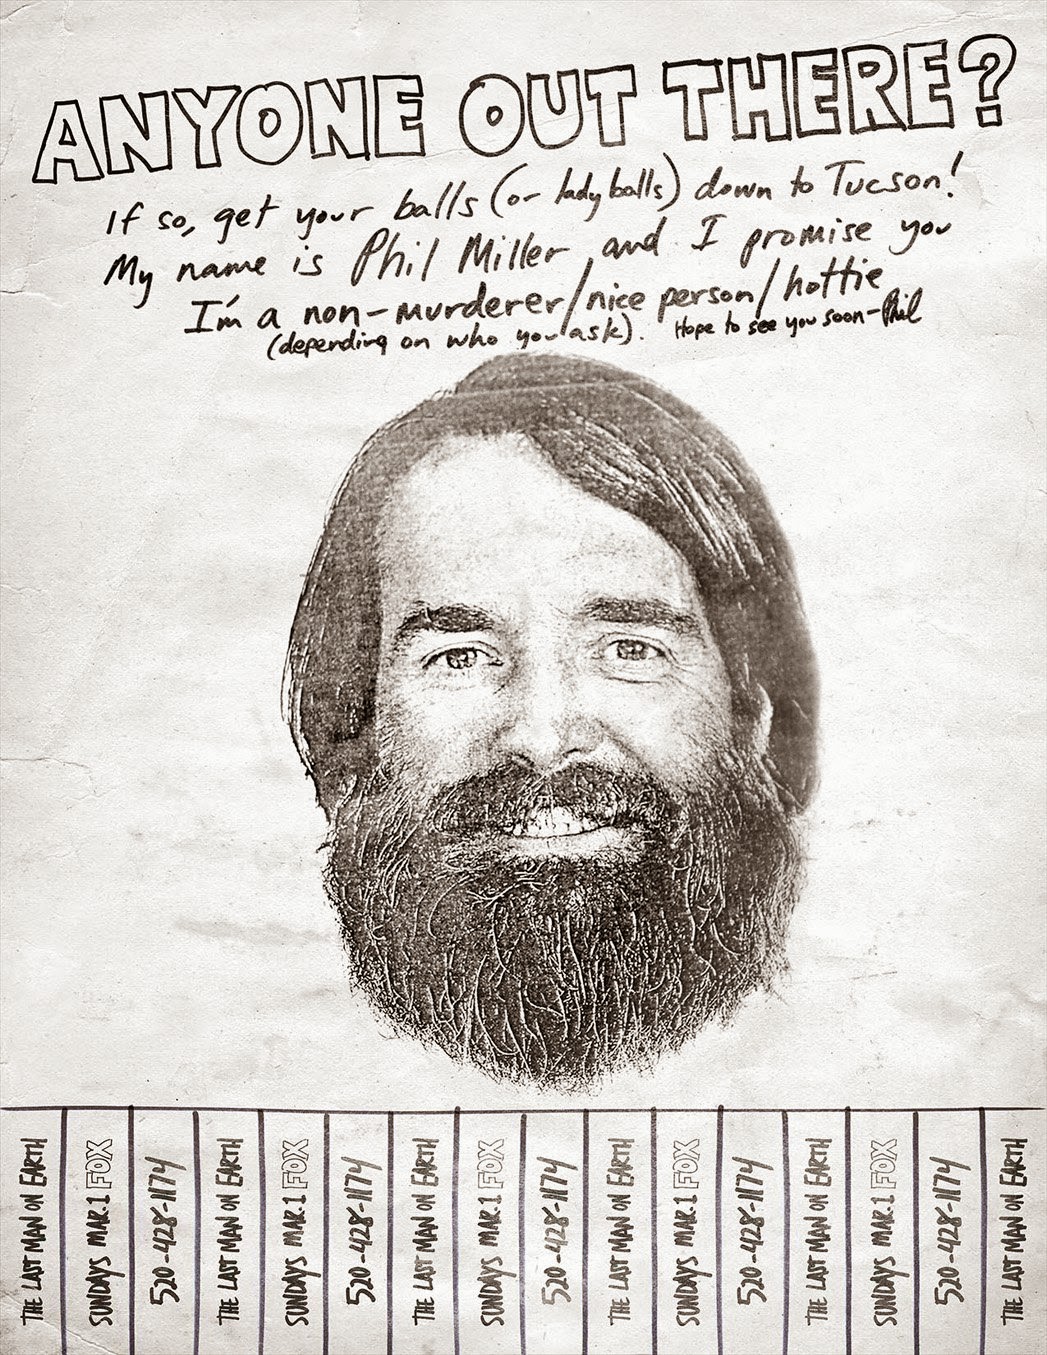 ANYONE OUT THERE?
If so, get your balls (or ladyballs) down to Tucson!
My name is Phil Miller and I promise you
I'm a non-murderer/nice person/hottie
(depending on who you ask). Hope to see you soon-Phil
THE LAST MAN ON EARTH
SUNDAYS MAR.1 FOX
520-428-1174
THE LAST MAN ON EARTH
SUNDAYS MAR.1 FOX
520-428-1174
THE LAST MAN ON EARTH
SUNDAYS MAR.1 FOX
520-428-1174
THE LAST MAN ON EARTH
SUNDAYS MAR.1 FOX
520-428-1174
THE LAST MAN ON EARTH
SUNDAYS MAR.1 FOX
520-428-1174
THE LAST MAN ON EARTH